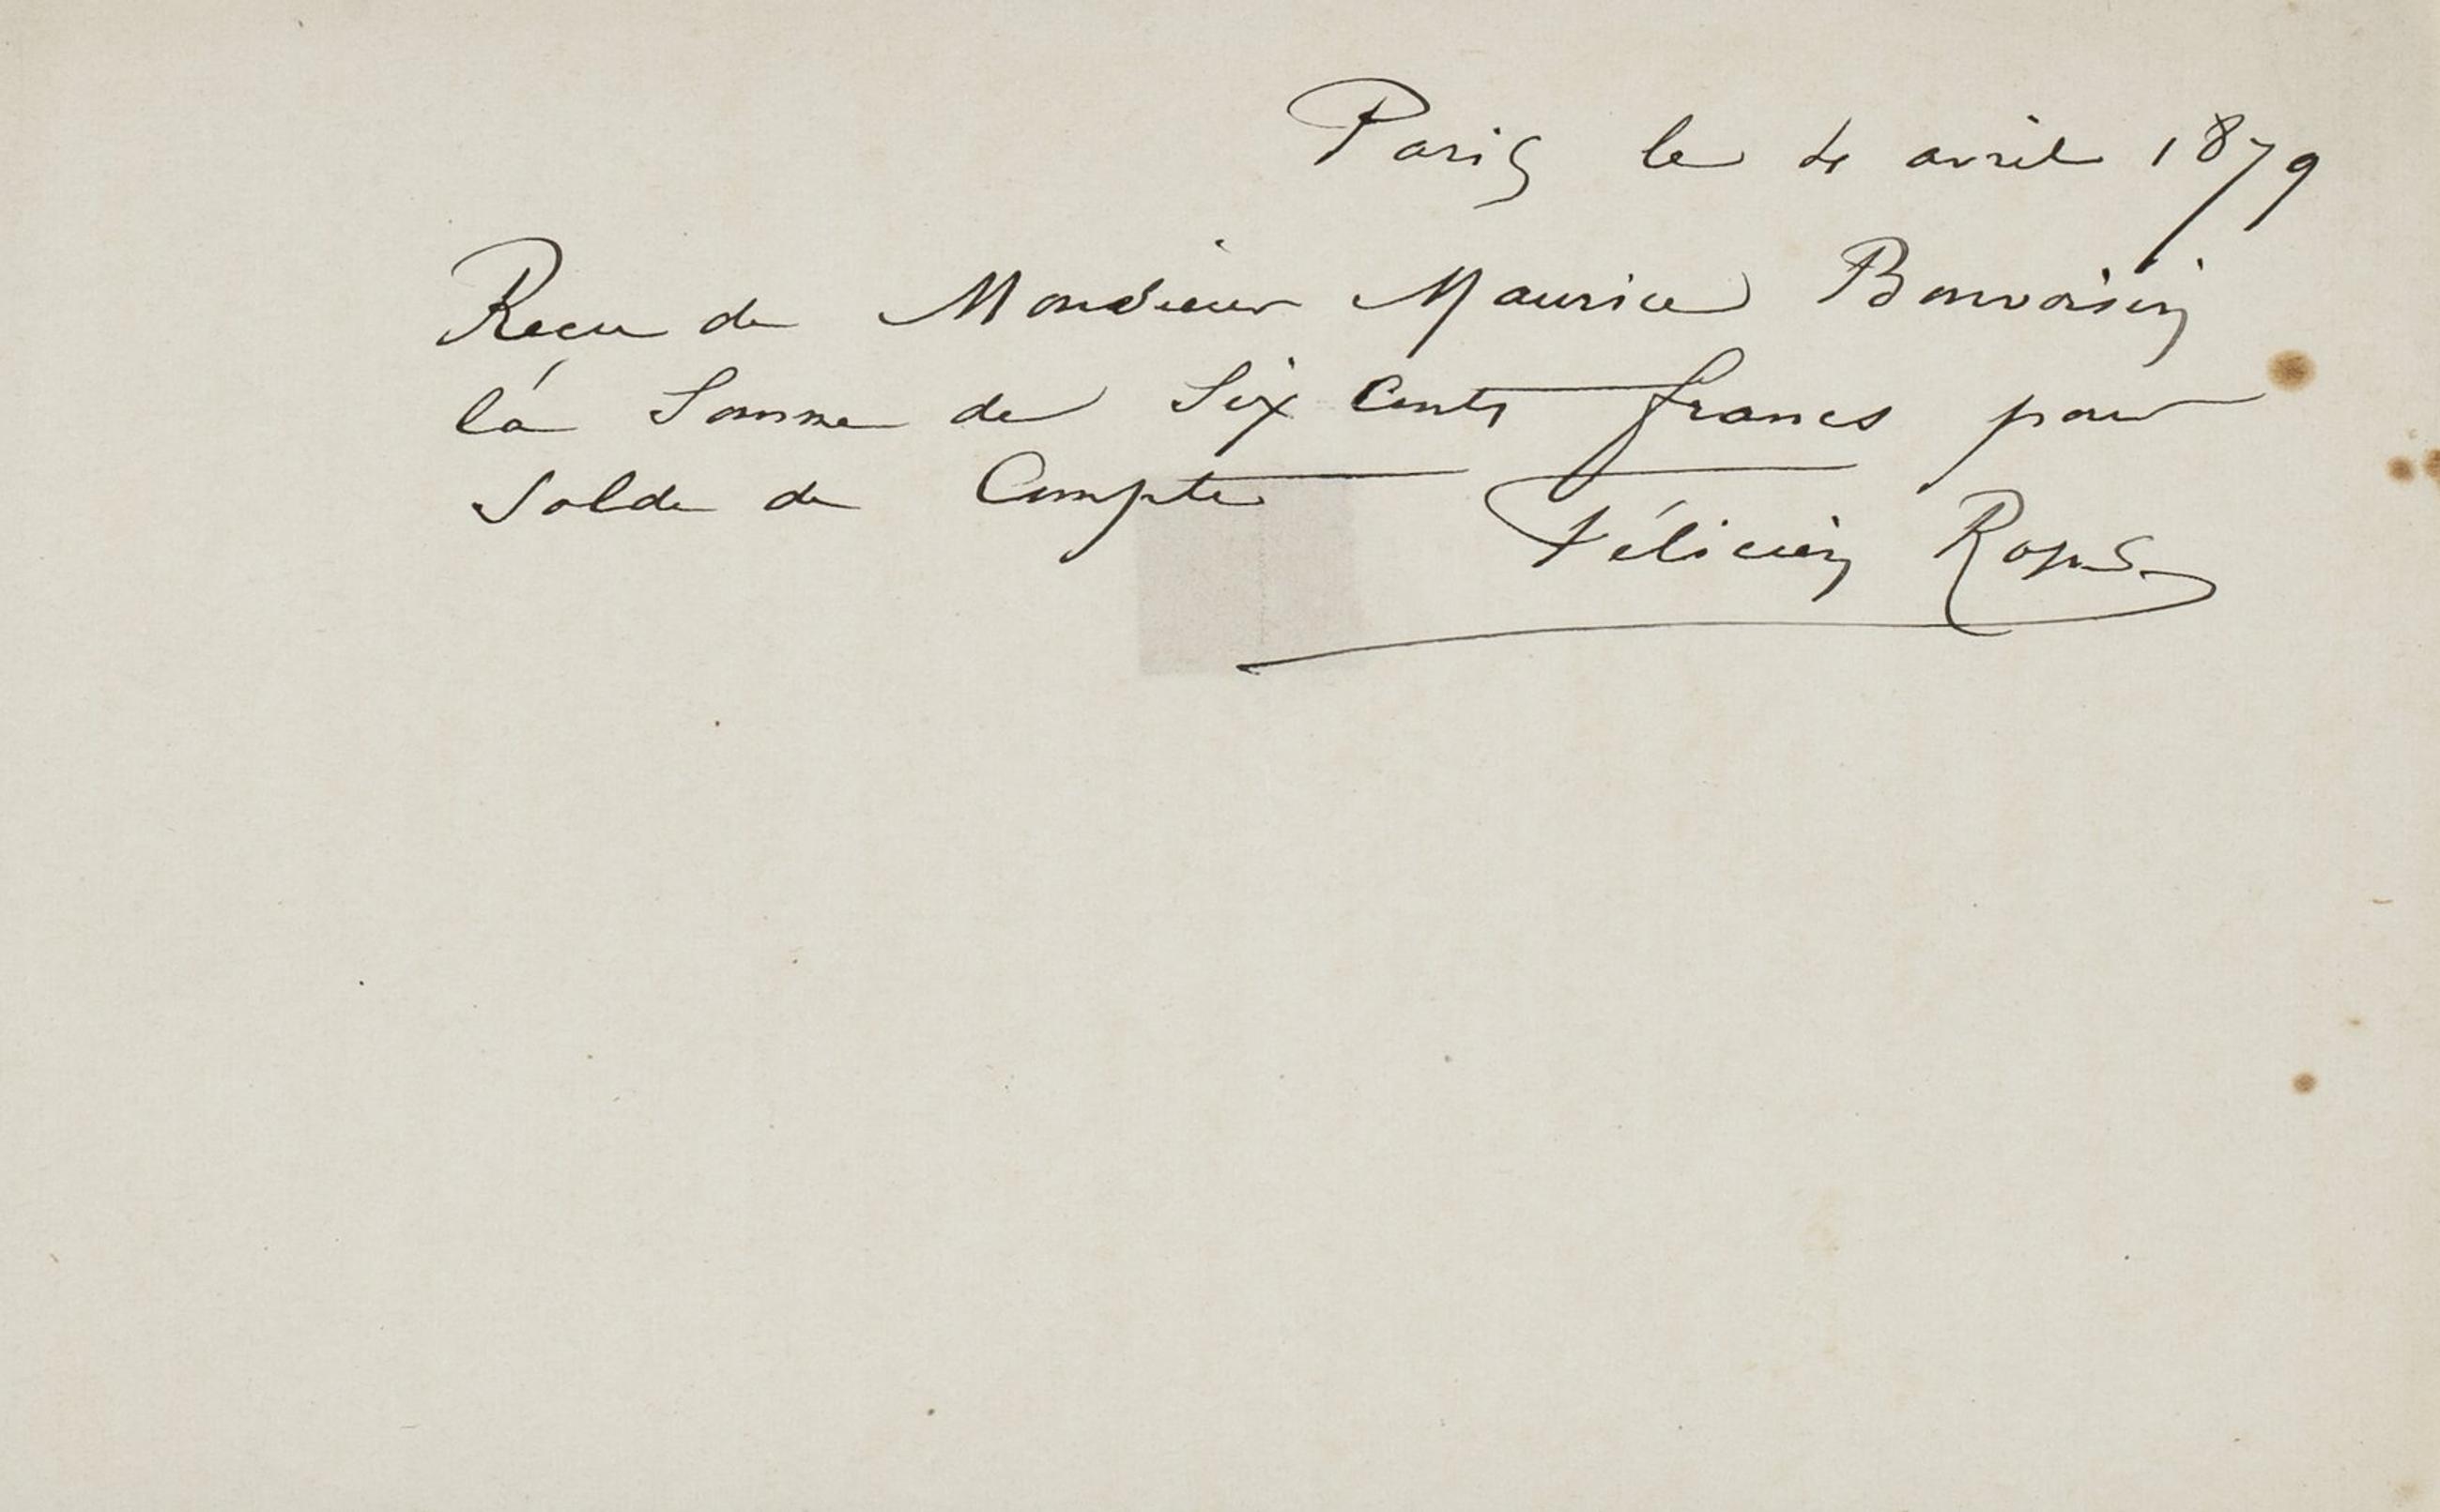 Paris le 4 avril 1879
Reçu de Monsieur Maurice Bonvoisin
la Somme de Six Cents francs pour
Solde de Compte
Félicien Rops